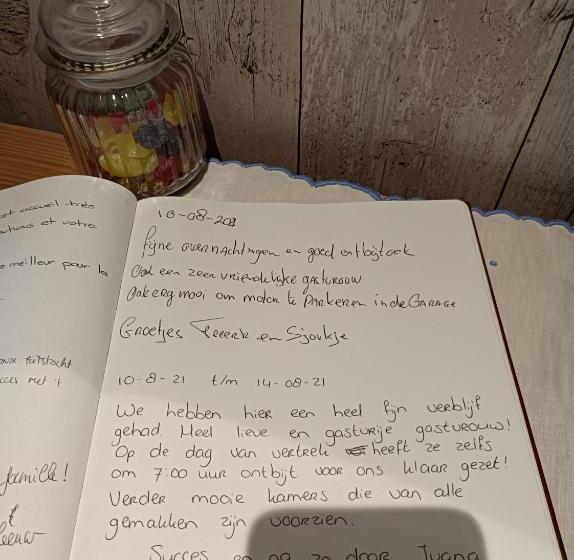 et accueil très
et votre
meilleur pour la
onze fietstocht
met 't
famille!
10-08-2021
Fijne overnachtingen en goed ontbijt ook
Ook een zeer vriendelijke gastvrouw
Ook erg mooi om motor te Parkeren in de GARAGE
Groetjes en Sjoukje
10-8-21 t/m 14-08-21
We hebben hier een heel fijn verblijf
gehad. Heel lieve en gastvrije gastvrouw!
Op de dag van vertrek heeft ze zelfs
om 7:00 uur ontbijt voor ons klaar gezet!
Verder mooie kamers die van alle
gemakken zijn voorzien.
Succes en ga zo door Juana